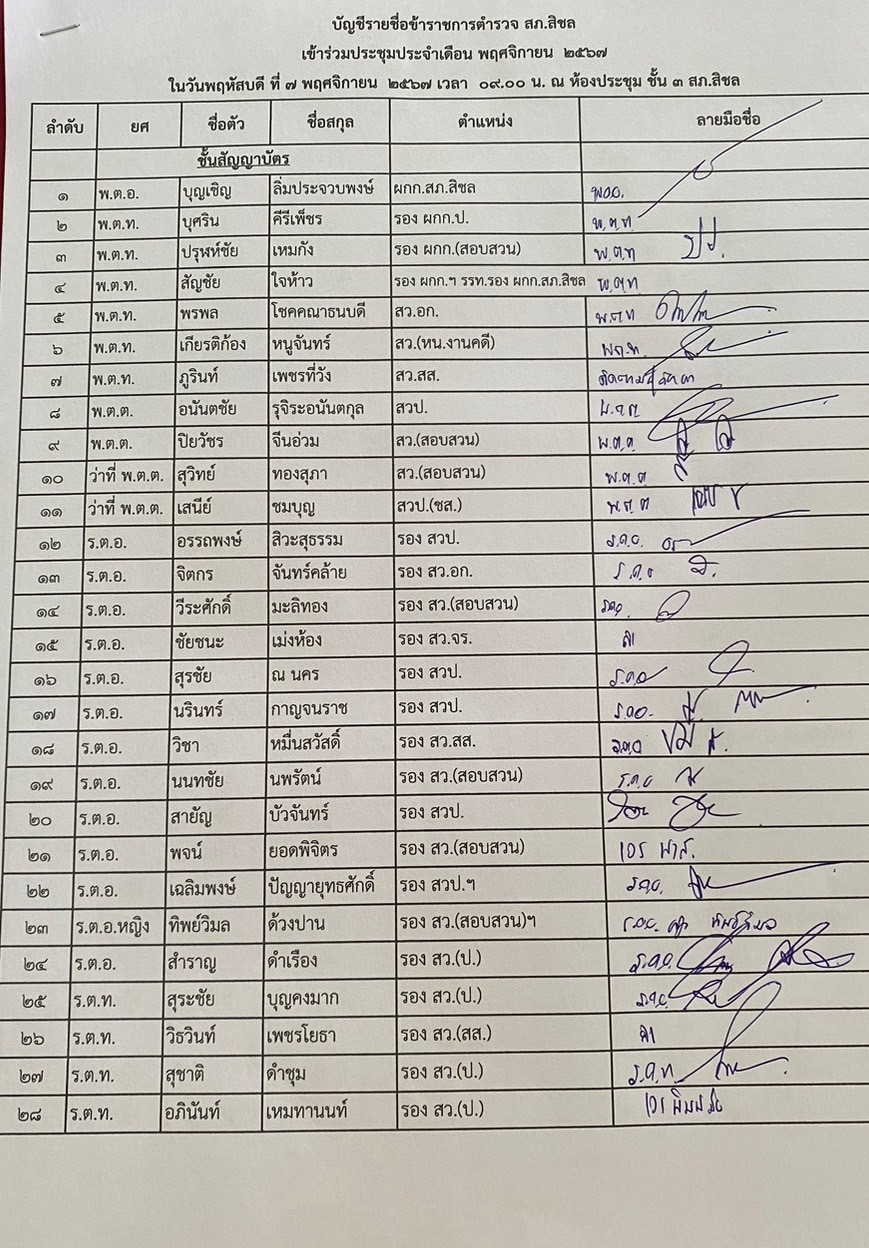 บัญชีรายชื่อข้าราชการตำรวจ สภ.สิชล
เข้าร่วมประชุมประจำเดือน พฤศจิกายน ๒๕๖๗
ในวันพฤหัสบดี ที่ ๗ พฤศจิกายน ๒๕๖๗ เวลา ๐๙.๐๐ น. ณ ห้องประชุม ชั้น ๓ สภ.สิชล
ลำดับ ยศ ชื่อตัว ชื่อสกุล ตำแหน่ง ลายมือชื่อ
ชั้นสัญญาบัตร
๑ พ.ต.อ. บุญเชิญ ลิ่มประจวบพงษ์ ผกก.สภ.สิชล
๒ พ.ต.ท. บุศริน คีรีเพ็ชร รอง ผกก.ป. พ.ต.ท.
๓ พ.ต.ท. ปรุฬห์ชัย เหมกัง รอง ผกก.(สอบสวน) พ.ต.ท
๔ พ.ต.ท. สัญชัย ใจห้าว รอง ผกก.ฯ รรท.รอง ผกก.สภ.สิชล พ.ต.ท
๕ พ.ต.ท. พรพล โชคคณาธนบดี สว.อก. พ.ต.ท
๖ พ.ต.ท. เกียรติก้อง หนูจันทร์ สว.(หน.งานคดี) พ.ต.ท.
๗ พ.ต.ท. ภูรินท์ เพชรที่วัง สว.สส.
๘ พ.ต.ต. อนันตชัย รุจิระอนันตกุล สวป. พ.ต.ต.
๙ พ.ต.ต. ปิยวัชร จีนอ่วม สว.(สอบสวน) พ.ต.ต
๑๐ ว่าที่ พ.ต.ต. สุวิทย์ ทองสุภา สว.(สอบสวน) พ.ต.ต
๑๑ ว่าที่ พ.ต.ต. เสนีย์ ชมบุญ สวป.(ชส.) พ.ต.ต
๑๒ ร.ต.อ. อรรถพงษ์ สิวะสุธรรม รอง สวป. ร.ต.อ.
๑๓ ร.ต.อ. จิตกร จันทร์คล้าย รอง สว.อก. ร.ต.อ
๑๔ ร.ต.อ. วีระศักดิ์ มะลิทอง รอง สว.(สอบสวน) รตอ.
๑๕ ร.ต.อ. ชัยชนะ เม่งห้อง รอง สว.จร. ลา
๑๖ ร.ต.อ. สุรชัย ณ นคร รอง สวป. ร.ต.อ
๑๗ ร.ต.อ. นรินทร์ กาญจนราช รอง สวป. ร.ต.อ.
๑๘ ร.ต.อ. วิชา หมื่นสวัสดิ์ รอง สว.สส. ร.ต.อ
๑๙ ร.ต.อ. นนทชัย นพรัตน์ รอง สว.(สอบสวน) ร.ต.อ
๒๐ ร.ต.อ. สายัญ บัวจันทร์ รอง สวป.
๒๑ ร.ต.อ. พจน์ ยอดพิจิตร รอง สว.(สอบสวน)
๒๒ ร.ต.อ. เฉลิมพงษ์ ปัญญายุทธศักดิ์ รอง สวป.ฯ ร.ต.อ.
๒๓ ร.ต.อ.หญิง ทิพย์วิมล ด้วงปาน รอง สว.(สอบสวน)ฯ ร.ต.อ.
๒๔ ร.ต.อ. สำราญ ดำเรือง รอง สว.(ป.) ร.ต.อ.
๒๕ ร.ต.ท. สุระชัย บุญคงมาก รอง สว.(ป.)
๒๖ ร.ต.ท. วิธวินท์ เพชรโยธา รอง สว.(สส.) ลา
๒๗ ร.ต.ท. สุชาติ ดำชุม รอง สว.(ป.) ร.ต.ท.
๒๘ ร.ต.ท. อภินันท์ เหมทานนท์ รอง สว.(ป.)